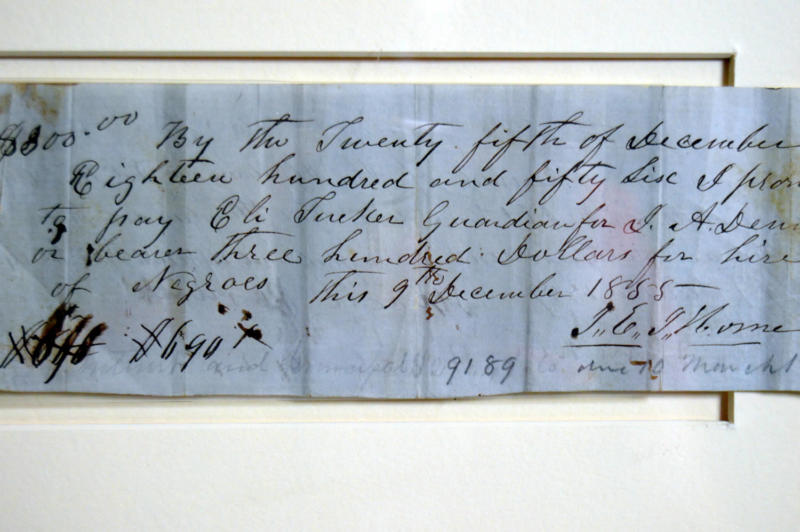 $300.00 By the Twenty fifth of December
Eighteen hundred and fifty Six I prom
to pay Eli Tucker Guardian for J. A. Denn
or bearer three hundred Dollars for hire
of Negroes this 9th December 1855
J,, E,, J,, Horne
$690
and 91.89 due 10 March